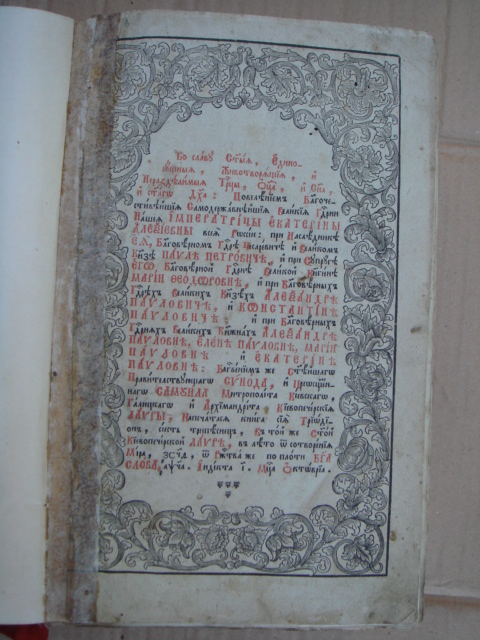 Во славу Ст҃ыѧ, Едино-
сꙋщныѧ, Животворѧщїѧ, и
Нераздѣлимыѧ Трⷪ҇цы, Ѻц҃а, и Сн҃а,
и ст҃агѡ Дх҃а: Повелѣнїемъ Благоче-
стивѣйшїѧ Самодержавнѣйшїѧ Великїѧ Гдⷭ҇рни
Нашеѧ ІМПЕРАТРІЦЫ ЕКАТЕРІНЫ
АЛЕѮЇЕВНЫ всеѧ Рѡссїи: при Наслѣдникѣ
ЕѦ, Благовѣрномъ Гдⷭ҇рѣ Цесаревичѣ и Великомъ
Кнѧзѣ ПАѴЛѢ ПЕТРОВИЧѢ, и при Сꙋпрꙋгѣ
ЕГѠ, Благовѣрной Гдⷭ҇рнѣ Великой Кнѧгинѣ
МАРІИ ѲЕОДѠРОВНѢ, и при Благовѣрныхъ
Гдⷭ҇рѣхъ Великихъ Кнѧзехъ АЛЕѮАНДРѢ
ПАѴЛОВИЧѢ, и КѠНСТАНТІНѢ
ПАѴЛОВИЧѢ; и при Благовѣрныхъ
Гдⷭ҇рнѧхъ Великихъ Кнѧжнахъ АЛЕѮАНДРѢ
ПАѴЛОВНѢ, ЕЛЕНѢ ПАѴЛОВНѢ, МАРІИ
ПАѴЛОВНѢ и ЕКАТЕРІНѢ
ПАѴЛОВНѢ: Благⷭ҇венїемъ же Ст҃ѣйшагѡ
Правителствꙋющагѡ СѴНОДА, и Преѡсщ҃ен-
нагѡ САМꙊИЛА Митрополіта Кїевскагѡ,
Галицкагѡ и Архїмандріта, Кїевопечерскїѧ
ЛАѴРЫ, Напечатасѧ книга сїѧ Трїѡдї-
ѡн, єсть трипѣснецъ, Въ той же Ст҃ой
Кїевопечерской ЛАѴРѢ, въ лѣто ѿ сотворенїѧ
Мїра, ҂зст҃д, ѿ Рⷤ҇тва же по плоти БГ҃А
СЛОВА, ҂аѱч҃а. Індікта і҃. Мцⷭ҇а Ѻктѡврїа.